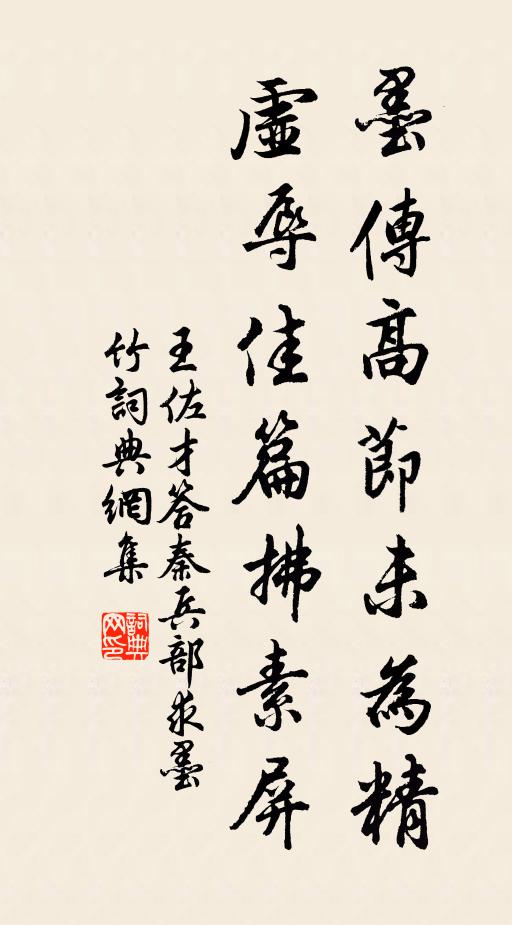 墨傳高節未為精
虛辱佳篇拂素屏
王佐才答秦兵部求墨
竹詞典網集
詞典网印